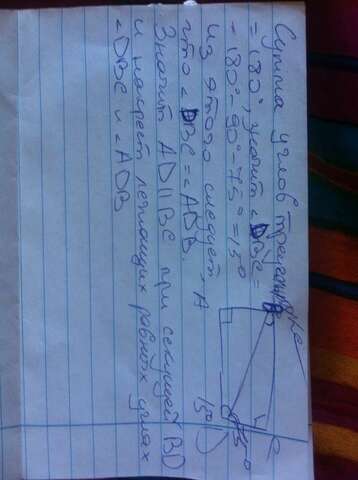 Сумма углов треугольника
= 180°, значит ∠DBC =
= 180° - 90° - 75° = 15°
Из этого следует,
что ∠DBC = ∠ADB.
Значит AD || BC при секущей BD
и накрест лежащих равных углах
∠DBC и ∠ADB
A
B
C
75°
15°